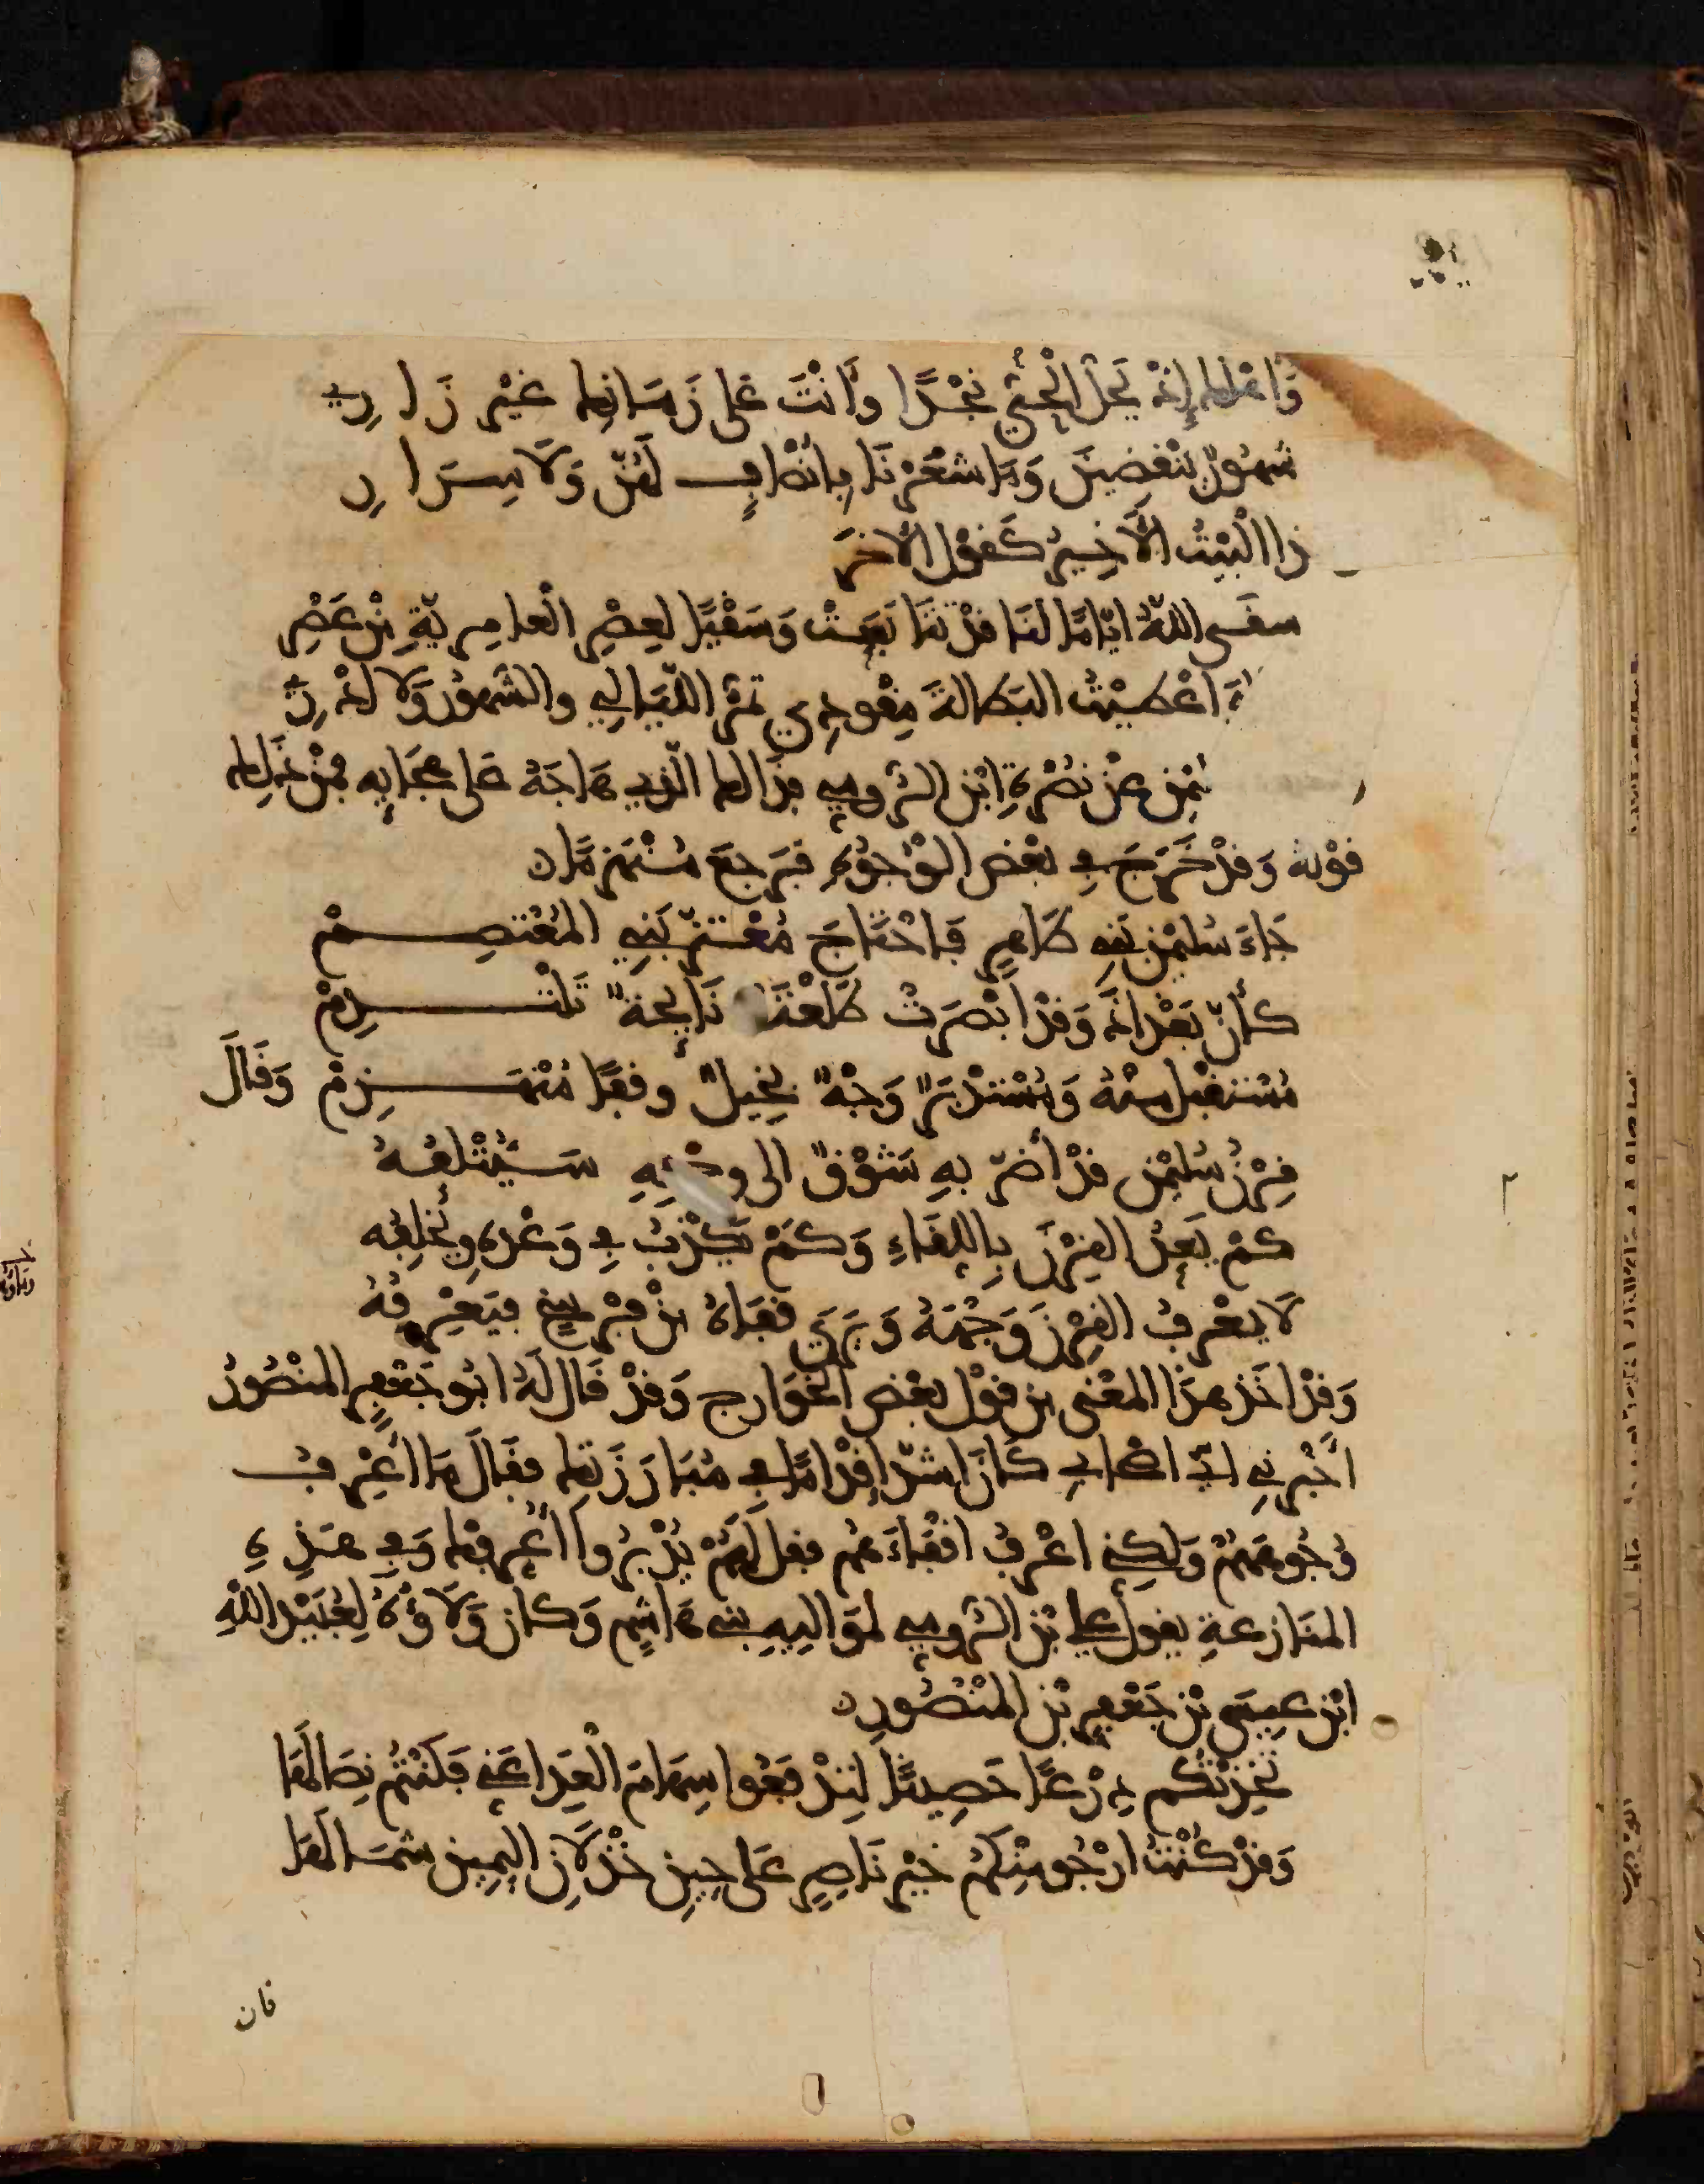 وَأَهْلُكَ إِذْ يَحُلُّ الْحَيُّ نَجْدًا وَأَنْتَ عَلَى زَمَانِكَ غَيْرُ زَارِي
شُهُورٌ يَنْقَضِينَ وَمَا شَعَرْنَا بِأَنْصَافٍ لَهُنَّ وَلَا سِرَارِ
ذا الْبَيْتُ الْأَخِيرُ كَقَوْلِ الْآخَر
سقى اللهُ ايّامًا لنَا قَدْ تتَابَعَتْ وَسَقْيًا لِعصْرِ الْعامِرِيّةِ مِنْ عَصْرِ
اعْطيْتُ البَطالةَ مِقْودِي تمُرّ اللّيَالِي والشّهُورُ وَلَا ادْرِي
عنْ نصْرةِ ابْنِ الرُّومِي هذَا الذي هَاجَهُ عَلى هجَايِه فمِنْ ذلِك
قوْلهُ وَقدْ خَرَجَ في بعْضِ الوُجُوهِ فَرَجعَ مُنْهَزِمًا
جَاءَ سُليْمٰنُ بَنِي طَاهِرٍ فَاجْتَاحَ مُعْتزَّ بَنِي المُعْتَصِمْ
كأنّ بَغْدَادَ وَقدْ ابْصَرَتْ طَلْعَتَهُ نَايِحَةٌ تَلْتَدِمْ
مُسْتقْبلٌ مِنْهُ وَمُسْتَدْبَرٌ وَجْهُ بخِيلٍ وقفَا مُنْهَزِمْ وَقَالَ
قِرْنُ سُليْمٰن قدْ أضرّ بهِ شَوْقٌ الى وجْهِهِ سَيُتْلِفُهُ
كمْ يَعِدُ القِرْنَ بِاللِّقَاءِ وَكمْ يَكْذِبُ في وَعْدِهِ وَيُخْلِفُه
لَا يعْرِفُ القِرْنُ وَجْهَهُ وَيَرَى قَفَاهُ مِنْ فرْسَخٍ فيَعْرِفُهُ
وَقدْ اخَذ هذَا المعْنى من قوْلِ بعْضِ الخَوَارجِ وَقدْ قَال لَهُ ابُو جَعْفَرٍ المنْصُورُ
اخْبِرنِي ايّ اصْحَابِي كَانَ اشدّ إقدَامًا في مُبَارَزَتِك فقَالَ مَا اعْرِفُ
وُجُوهَهُمْ وَلكِنِّي اعْرفُ اقْفَاءَهُم فقل لَهُمْ يُدْبِرُوا أُعَرِّفْك وَفي هَذِهِ
المنَازعةِ يقولُ علي بْن الرُّومِي لموَالِيهِ بنِي هَاشِمٍ وَكان وَلَاؤُهُ لِعُبَيْدِ اللهِ
ابْن عِيسَى بْن جَعْفرِ بْن المنْصُورِ
تخِذْتُكُم دِرْعًا حَصِينًا لِتدْفَعُوا سِهَامَ الْعِدَا عَنِّي فَكُنْتُم نِصَالهَا
وَقدْ كُنْتُ ارْجُو مِنْكُمُ خَيْرَ نَاصِرٍ عَلى حِينِ خِذْلَانِ اليَمِينِ شِمَالهَا
فان